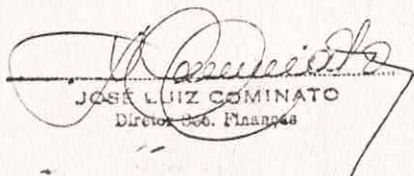 JOSÉ LUIZ COMINATO
Diretor Sub. Finanças